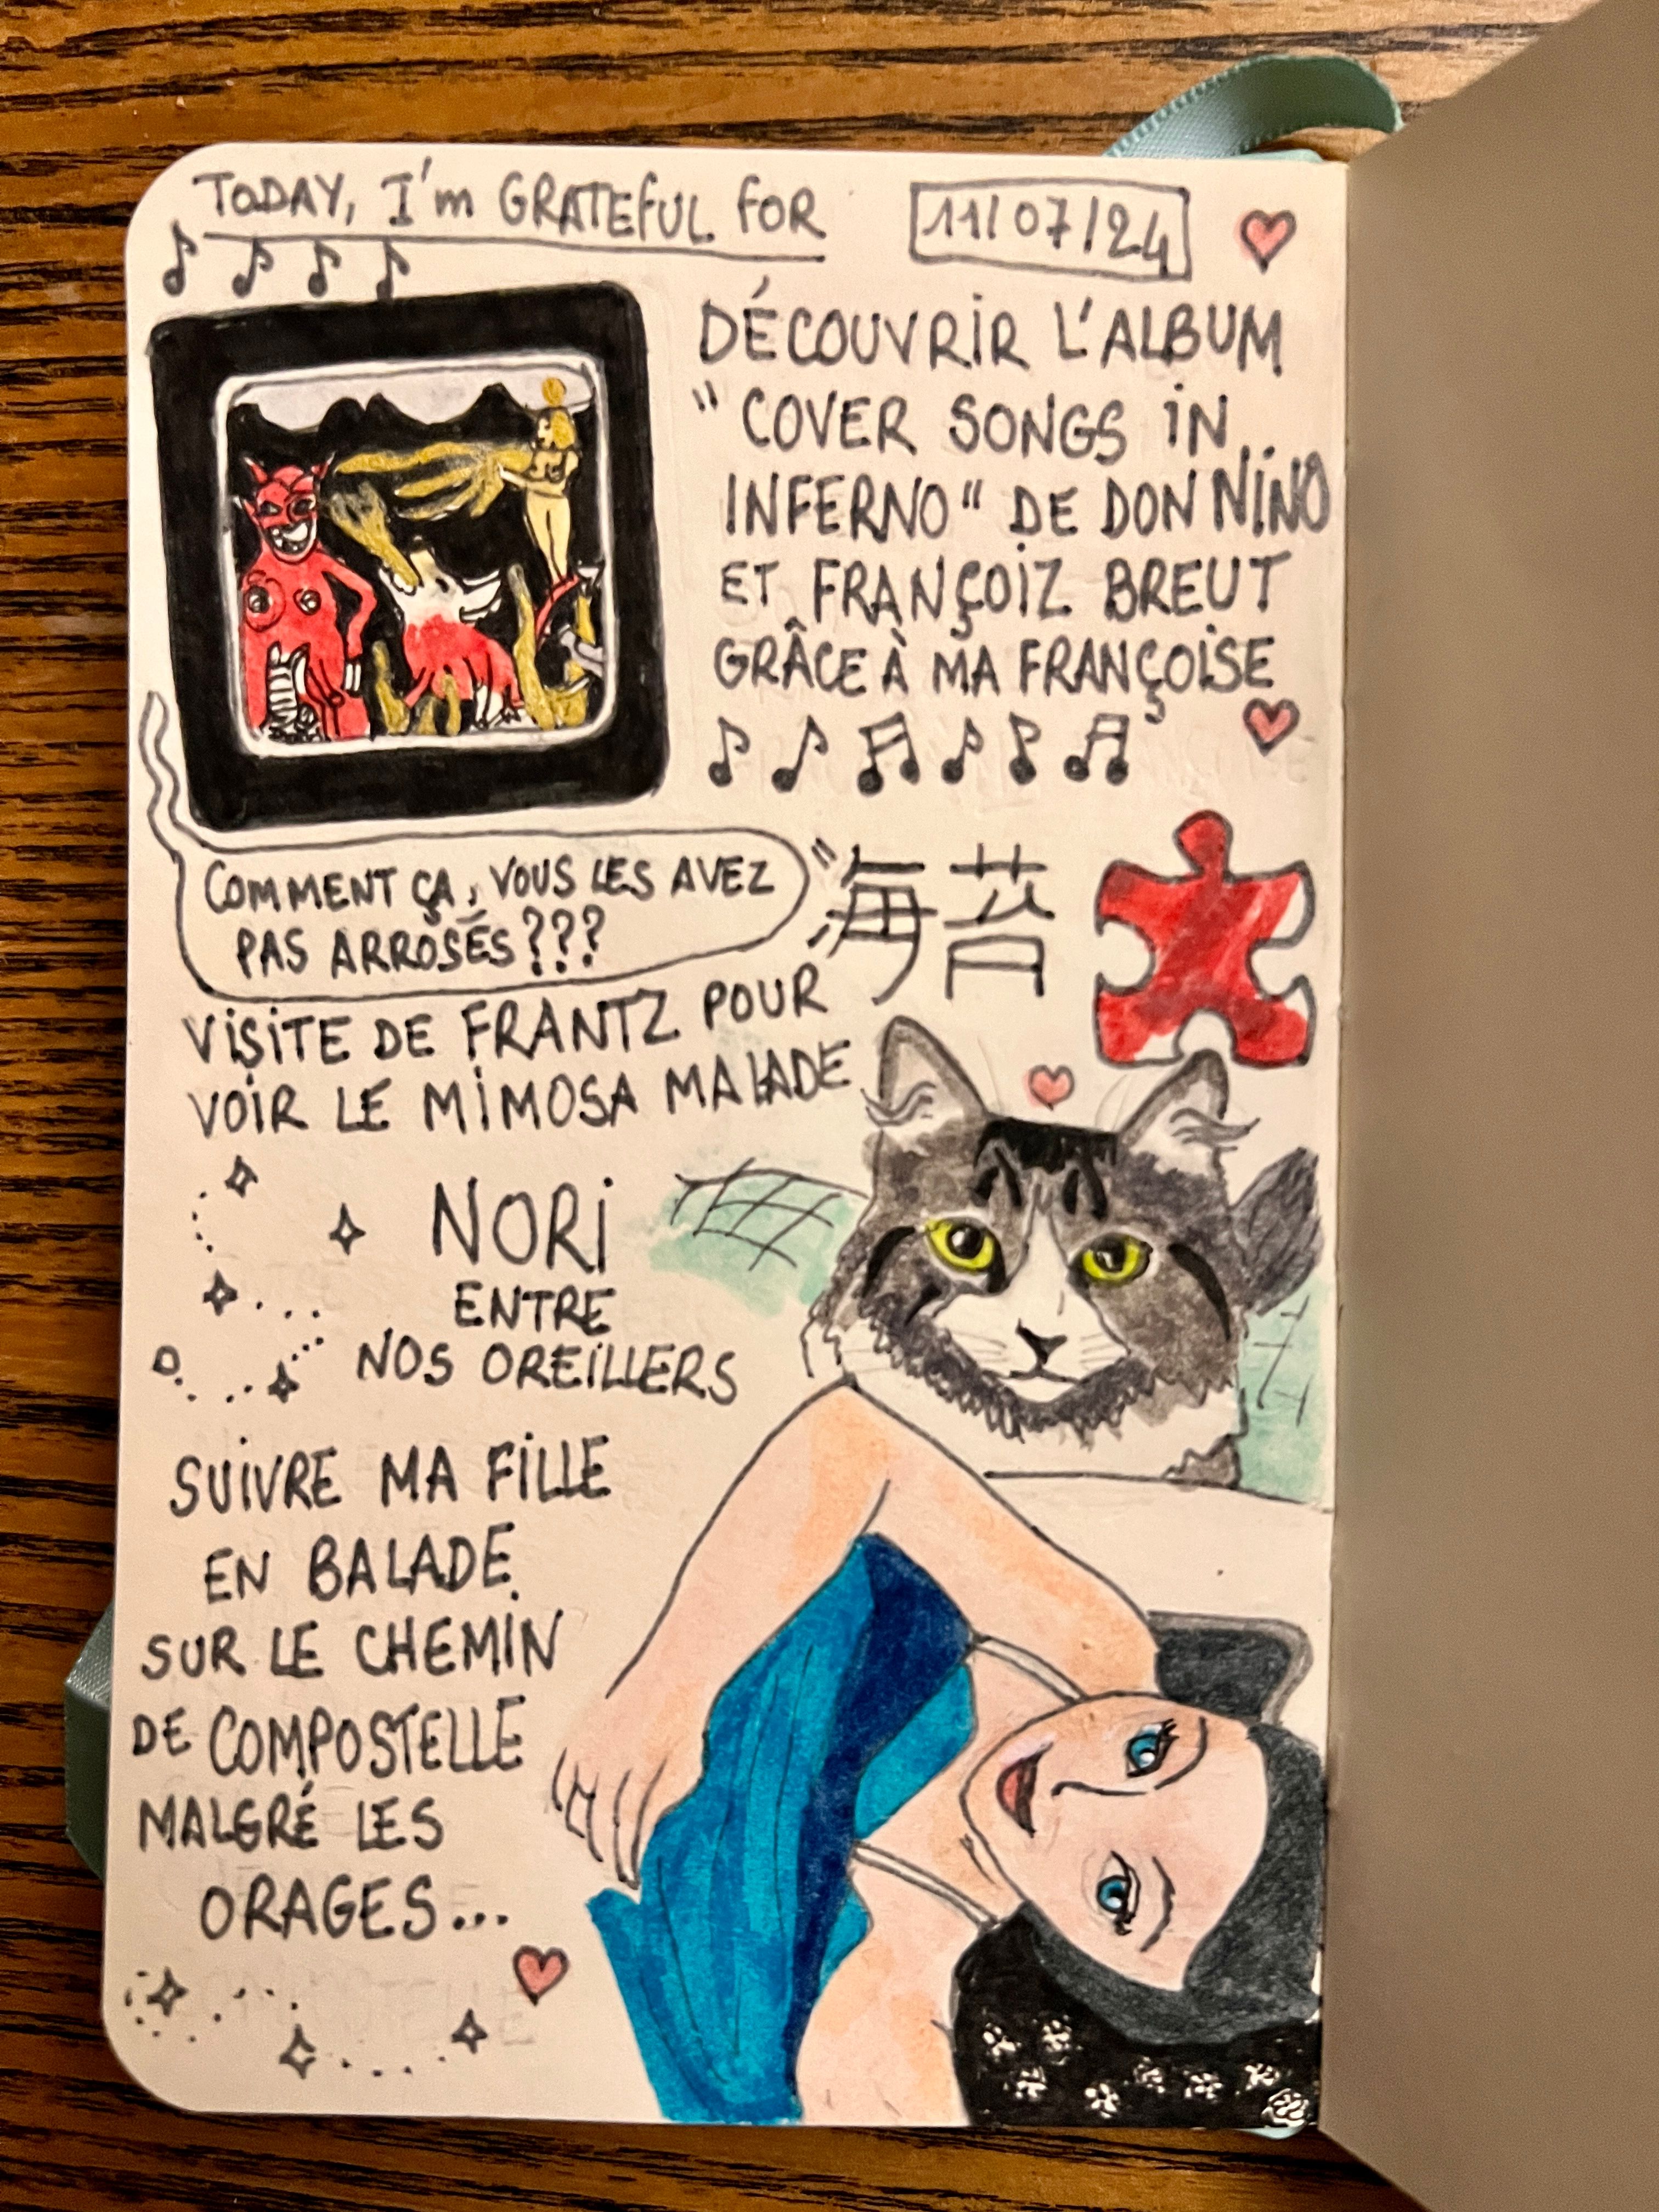 TODAY, I'm GRATEFUL FOR
11/07/24
DÉCOUVRIR L'ALBUM
"COVER SONGS IN
INFERNO" DE DON NINO
ET FRANÇOIZ BREUT
GRÂCE À MA FRANÇOISE
COMMENT ÇA, VOUS LES AVEZ
PAS ARROSÉS ???
"海苔
VISITE DE FRANTZ POUR
VOIR LE MIMOSA MALADE
NORI
ENTRE
NOS OREILLERS
SUIVRE MA FILLE
EN BALADE
SUR LE CHEMIN
DE COMPOSTELLE
MALGRÉ LES
ORAGES...